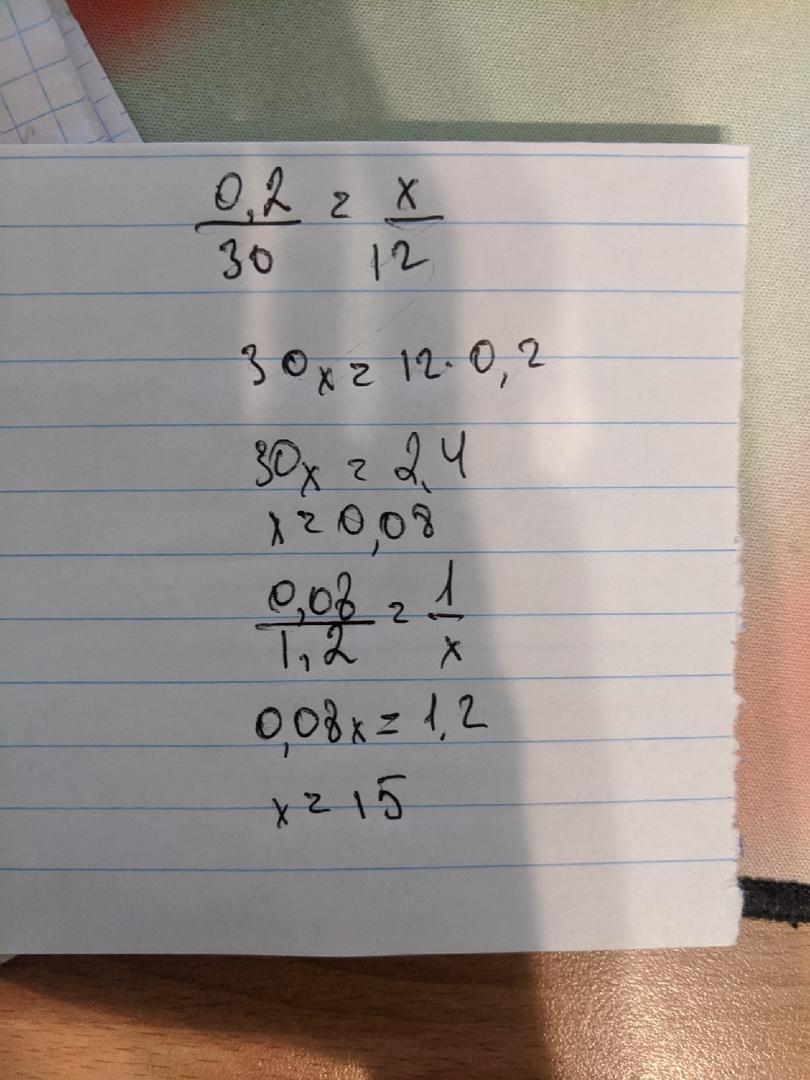 0,2/30 = x/12
30x = 12·0,2
30x = 2,4
x = 0,08
0,08/1,2 = 1/x
0,08x = 1,2
x = 15